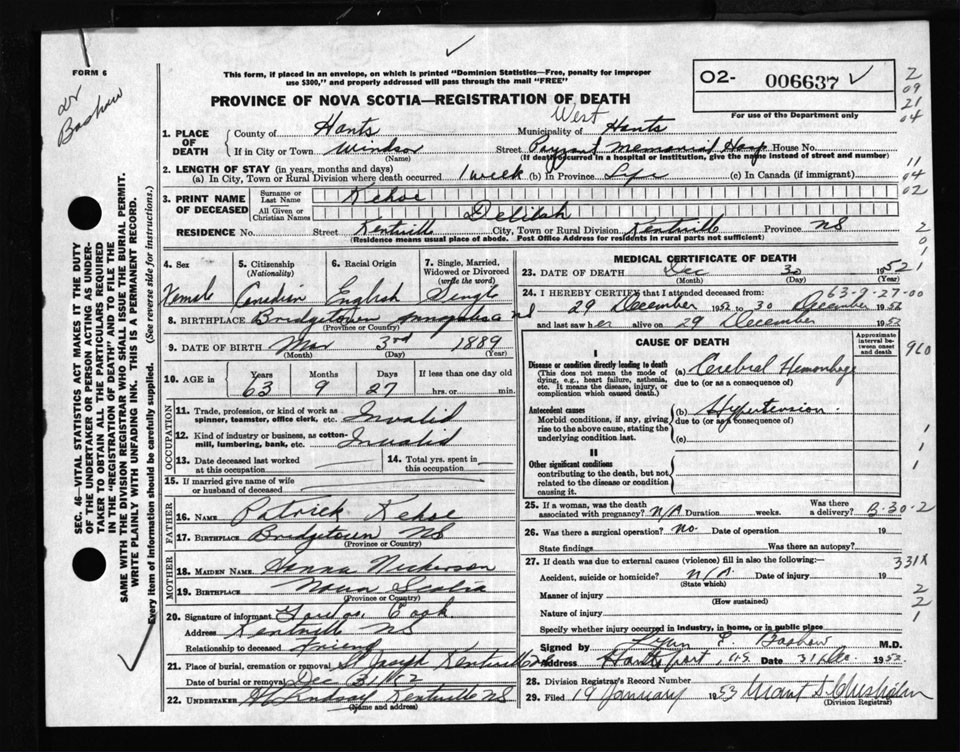 FORM 6
Dr Bashaw
This form, if placed in an envelope, on which is printed "Dominion Statistics—Free, penalty for improper
use $300," and properly addressed will pass through the mail "FREE"
02- 006637
For use of the Department only
PROVINCE OF NOVA SCOTIA—REGISTRATION OF DEATH
2
09
21
04
11
04
02
2
0
1
1
SEC. 46—VITAL STATISTICS ACT MAKES IT THE DUTY
OF THE UNDERTAKER OR PERSON ACTING AS UNDER-
TAKER TO OBTAIN ALL THE PARTICULARS REQUIRED
IN THE "REGISTRATION OF DEATH" AND TO FILE THE
SAME WITH THE DIVISION REGISTRAR WHO SHALL ISSUE THE BURIAL PERMIT.
WRITE PLAINLY WITH UNFADING INK. THIS IS A PERMANENT RECORD.
Every item of information should be carefully supplied. (See reverse side for instructions.)
1. PLACE OF DEATH County of Hants Municipality of West Hants
If in City or Town Windsor Street Payzant Memorial Hosp House No.
(Name) (If death occurred in a hospital or institution, give the name instead of street and number)
2. LENGTH OF STAY (in years, months and days)
(a) In City, Town or Rural Division where death occurred 1 week (b) In Province Life (c) In Canada (if immigrant)
3. PRINT NAME OF DECEASED Surname or Last Name Kehoe
All Given or Christian Names Delilah
RESIDENCE No. Street Kentville City, Town or Rural Division Kentville Province NS
(Residence means usual place of abode. Post Office Address for residents in rural parts not sufficient)
4. Sex 5. Citizenship (Nationality) 6. Racial Origin 7. Single, Married, Widowed or Divorced (write the word)
Female Canadian English Single
8. BIRTHPLACE Bridgetown Annapolis Co NS
(Province or Country)
9. DATE OF BIRTH Mar 3rd 1889
(Month) (Day) (Year)
10. AGE in Years Months Days If less than one day old
63 9 27 hrs. or min.
OCCUPATION
11. Trade, profession, or kind of work as spinner, teamster, office clerk, etc. Invalid
12. Kind of industry or business, as cotton-mill, lumbering, bank, etc. Invalid
13. Date deceased last worked at this occupation 14. Total yrs. spent in this occupation
15. If married give name of wife or husband of deceased
FATHER
16. NAME Patrick Kehoe
17. BIRTHPLACE Bridgetown NS
(Province or Country)
MOTHER
18. MAIDEN NAME Hanna Nickerson
19. BIRTHPLACE Nova Scotia
(Province or Country)
20. Signature of informant Cook
Address Kentville NS
Relationship to deceased Friend
21. Place of burial, cremation or removal St Joseph Kentville
Date of burial or removal Dec 31/52
22. UNDERTAKER Lindsay Kentville NS
(Name and address)
MEDICAL CERTIFICATE OF DEATH
23. DATE OF DEATH Dec 30 1952
(Month) (Day) (Year)
24. I HEREBY CERTIFY that I attended deceased from: 63-9-27-00
29 December 1952 to 30 December 1952
and last saw her alive on 29 December 1952
CAUSE OF DEATH
Approximate interval between onset and death
960
I
Disease or condition directly leading to death (a) Cerebral Hemorrhage
(This does not mean the mode of dying, e.g., heart failure, asthenia, etc. It means the disease, injury, or complication which caused death.)
due to (or as a consequence of)
Antecedent causes (b) Hypertension
Morbid conditions, if any, giving rise to the above cause, stating the underlying condition last.
due to (or as a consequence of)
(c)
1
1
II
Other significant conditions
contributing to the death, but not related to the disease or condition causing it.
25. If a woman, was the death associated with pregnancy? N/A Duration weeks. Was there a delivery?
B-30-2
26. Was there a surgical operation? No. Date of operation 19
State findings Was there an autopsy?
27. If death was due to external causes (violence) fill in also the following:—
331X
Accident, suicide or homicide? N/A Date of injury 19
(State which)
Manner of injury
(How sustained)
2
2
Nature of injury
1
Specify whether injury occurred in industry, in home, or in public place
Signed by Lynn E. Bashaw M.D.
Address Hantsport, N.S. Date 31 Dec. 1952
28. Division Registrar's Record Number
29. Filed 19 January 1953 Grant S. Chisholm
(Division Registrar)